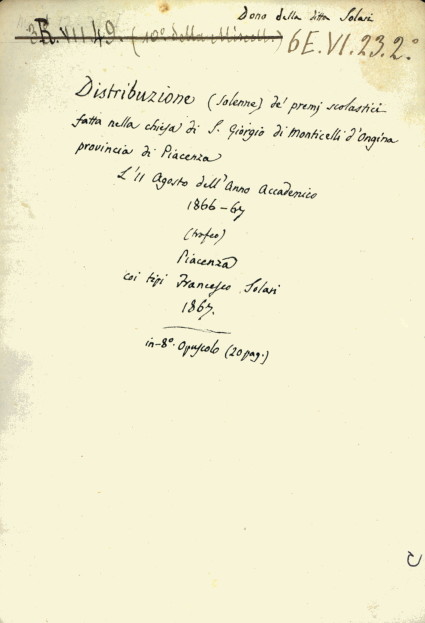 Dono della ditta Solari
R.VII.49. (10º della Miscell.) 6E.VI.23.2.º
Distribuzione (solenne) de' premj scolastici
fatta nella chiesa di S. Giorgio di Monticelli d'Ongina
provincia di Piacenza
L'11 Agosto dell'Anno Accademico
1866-67
(trofeo)
Piacenza
coi tipi Francesco Solari
1867.
in-8º. Opuscolo (20 pag.)